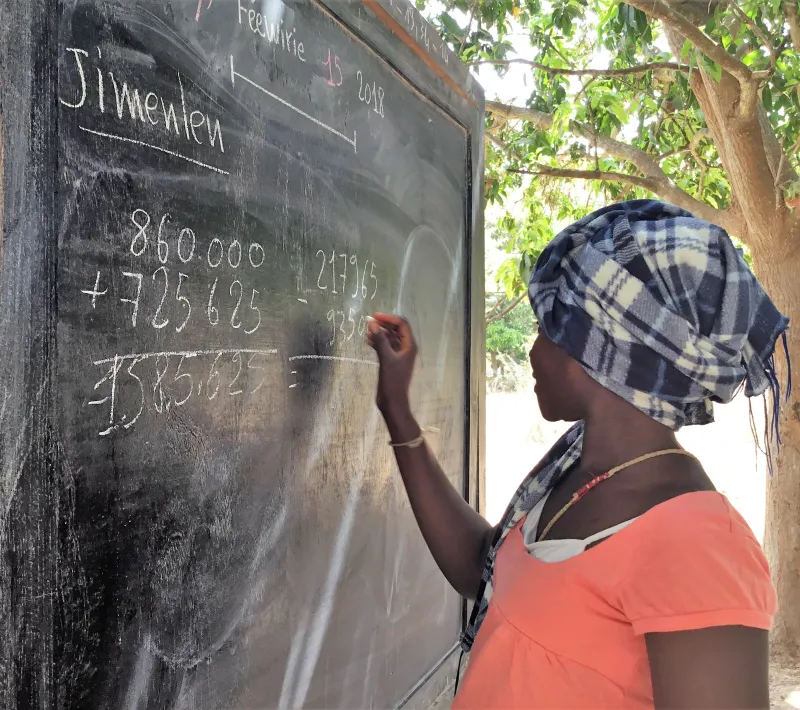 Feewirie 15 2018
Jimenlen
860.000
+ 725 625
= 1585.625
- 217965
935
=